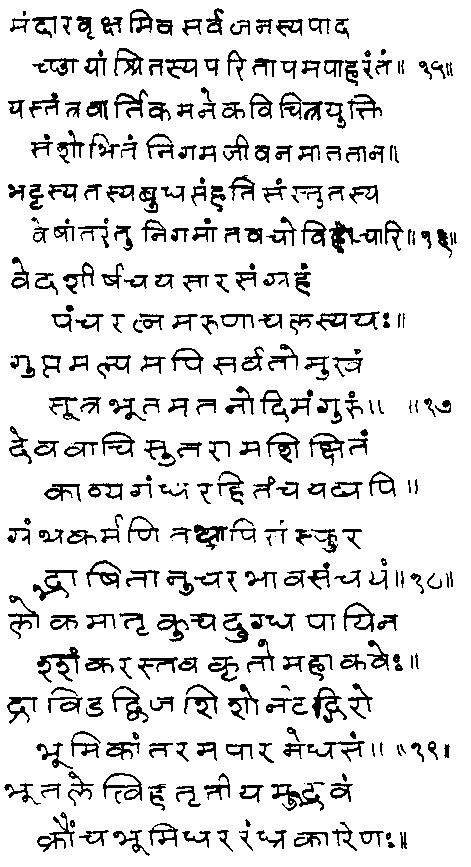 मंदारवृक्षमिवसर्वजनस्यपाद
च्छायांश्रितस्यपरितापमपाहरंतं॥ १५॥
यस्तंत्रवार्तिकमनेकविचित्रयुक्ति
संशोभितंनिगमजीवनमाततान॥
भट्टस्यतस्यबुधसंहतिसंस्तुतस्य
वेषांतरंतुनिगमांतवचोविचारि॥१६॥
वेदशीर्षचयसारसंग्रहं
पंचरत्नमरुणाचलस्ययः॥
गुप्तमल्पमपिसर्वतोमुखं
सूत्रभूतमतनोदिमंगुरुं॥ ॥१७
देववाचिसुतरामशिक्षितं
काव्यगंधरहितंचयद्यपि॥
ग्रंथकर्मणितथापिसंस्फुर
द्भाषितानुचरभावसंचयं॥१८॥
लोकमातृकुचदुग्धपायिन
श्शंकरस्तवकृतोमहाकवेः॥
द्राविडद्विजशिशोर्नटद्गिरो
भूमिकांतरमपारमेधसं॥ ॥१९॥
भूतलेत्विहतृतीयमुद्भवं
क्रौंचभूमिधररंध्रकारिणः॥